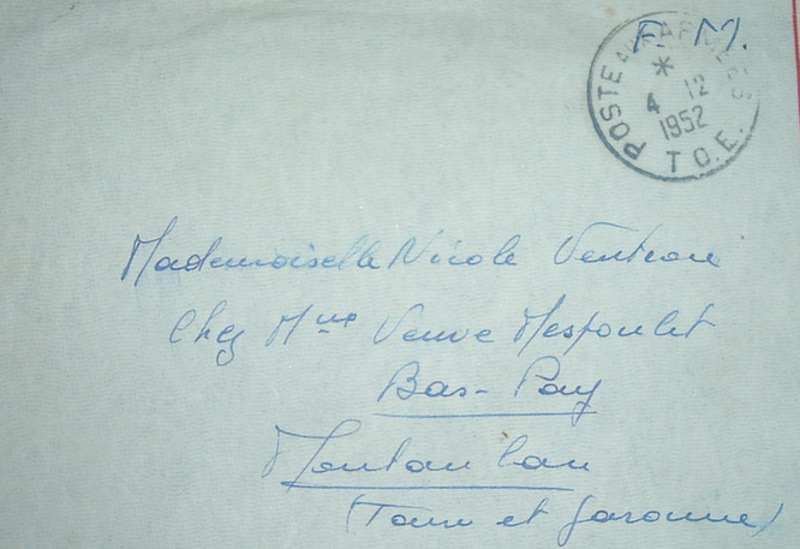 F. M.
POSTE AUX ARMEES
*
4 12
1952
T.O.E.
Mademoiselle Nicole
Chez Mme Veuve Mespoulet
Bas-Pay
Montauban
(Tarn et Garonne)